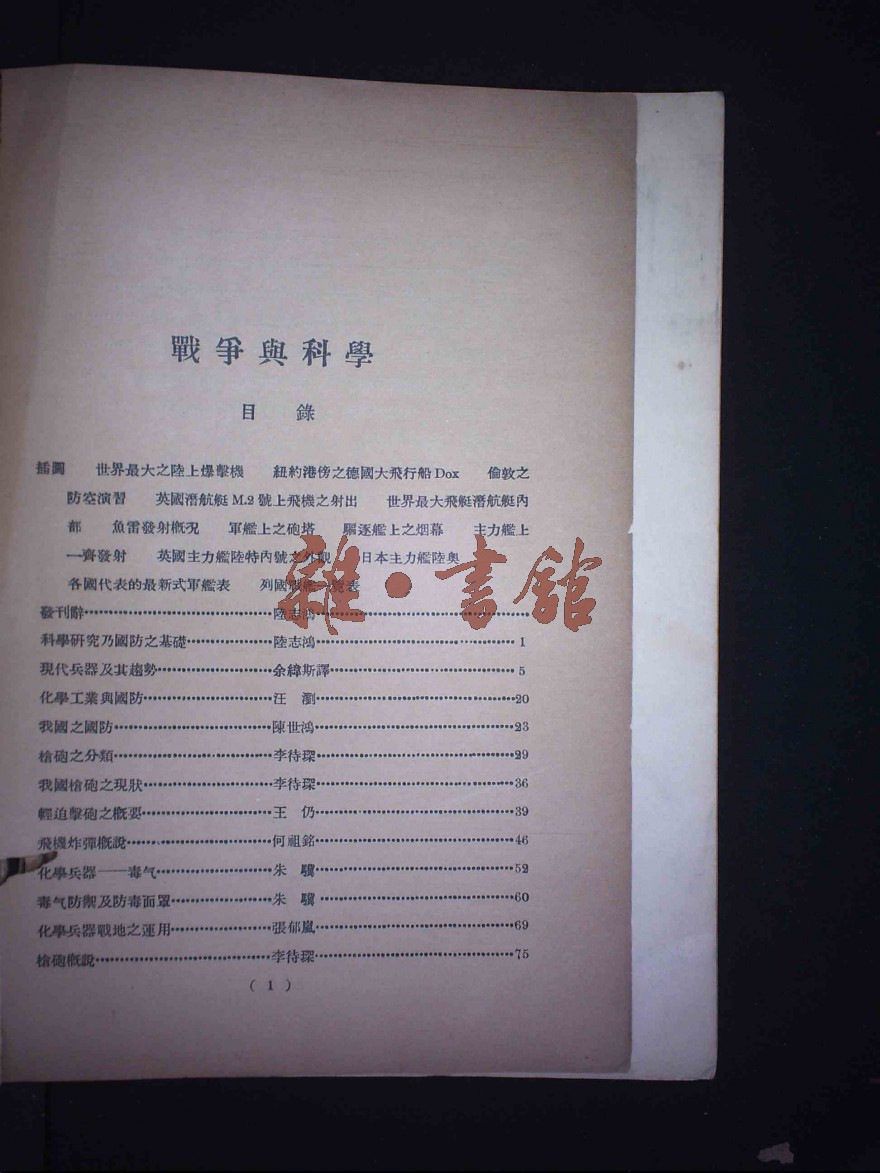 戰爭與科學
目　錄
插圖　世界最大之陸上爆擊機　紐約港傍之德國大飛行船Dox　倫敦之
防空演習　英國潛航艇M.2號上飛機之射出　世界最大飛艇潛航艇內
部　魚雷發射概況　軍艦上之砲塔　驅逐艦上之烟幕　主力艦上
一齊發射　英國主力艦陸特內號之外觀　日本主力艦陸奥
各國代表的最新式軍艦表　列國戰艦一覽表
發刊辭……陸志鴻……
科學研究乃國防之基礎……陸志鴻……1
現代兵器及其趨勢……余緯斯譯……5
化學工業與國防……汪　瀏……20
我國之國防……陳世鴻……23
槍砲之分類……李待琛……29
我國槍砲之現狀……李待琛……36
輕迫擊砲之概要……王　仍……39
飛機炸彈概說……何祖銘……46
化學兵器——毒气……朱　驥……52
毒气防禦及防毒面罩……朱　驥……60
化學兵器戰地之運用……張郁嵐……69
槍砲概說……李待琛……75
（1）
雜·書館